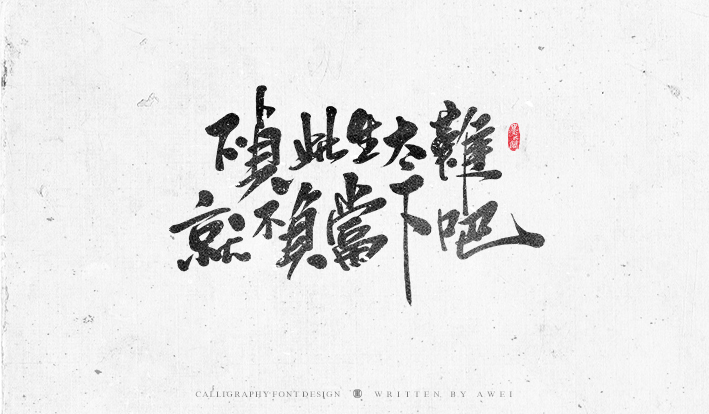 不負此生太難
就不負當下吧
CALLIGRAPHY FONT DESIGN WRITTEN BY AWEI